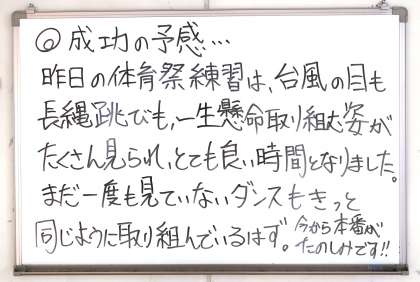 ◎成功の予感…
昨日の体育祭練習は、台風の目も
長縄跳びも、一生懸命取り組む姿が
たくさん見られ、とても良い時間となりました。
まだ一度も見ていないダンスもきっと
同じように取り組んでいるはず。今から本番が
たのしみです!!